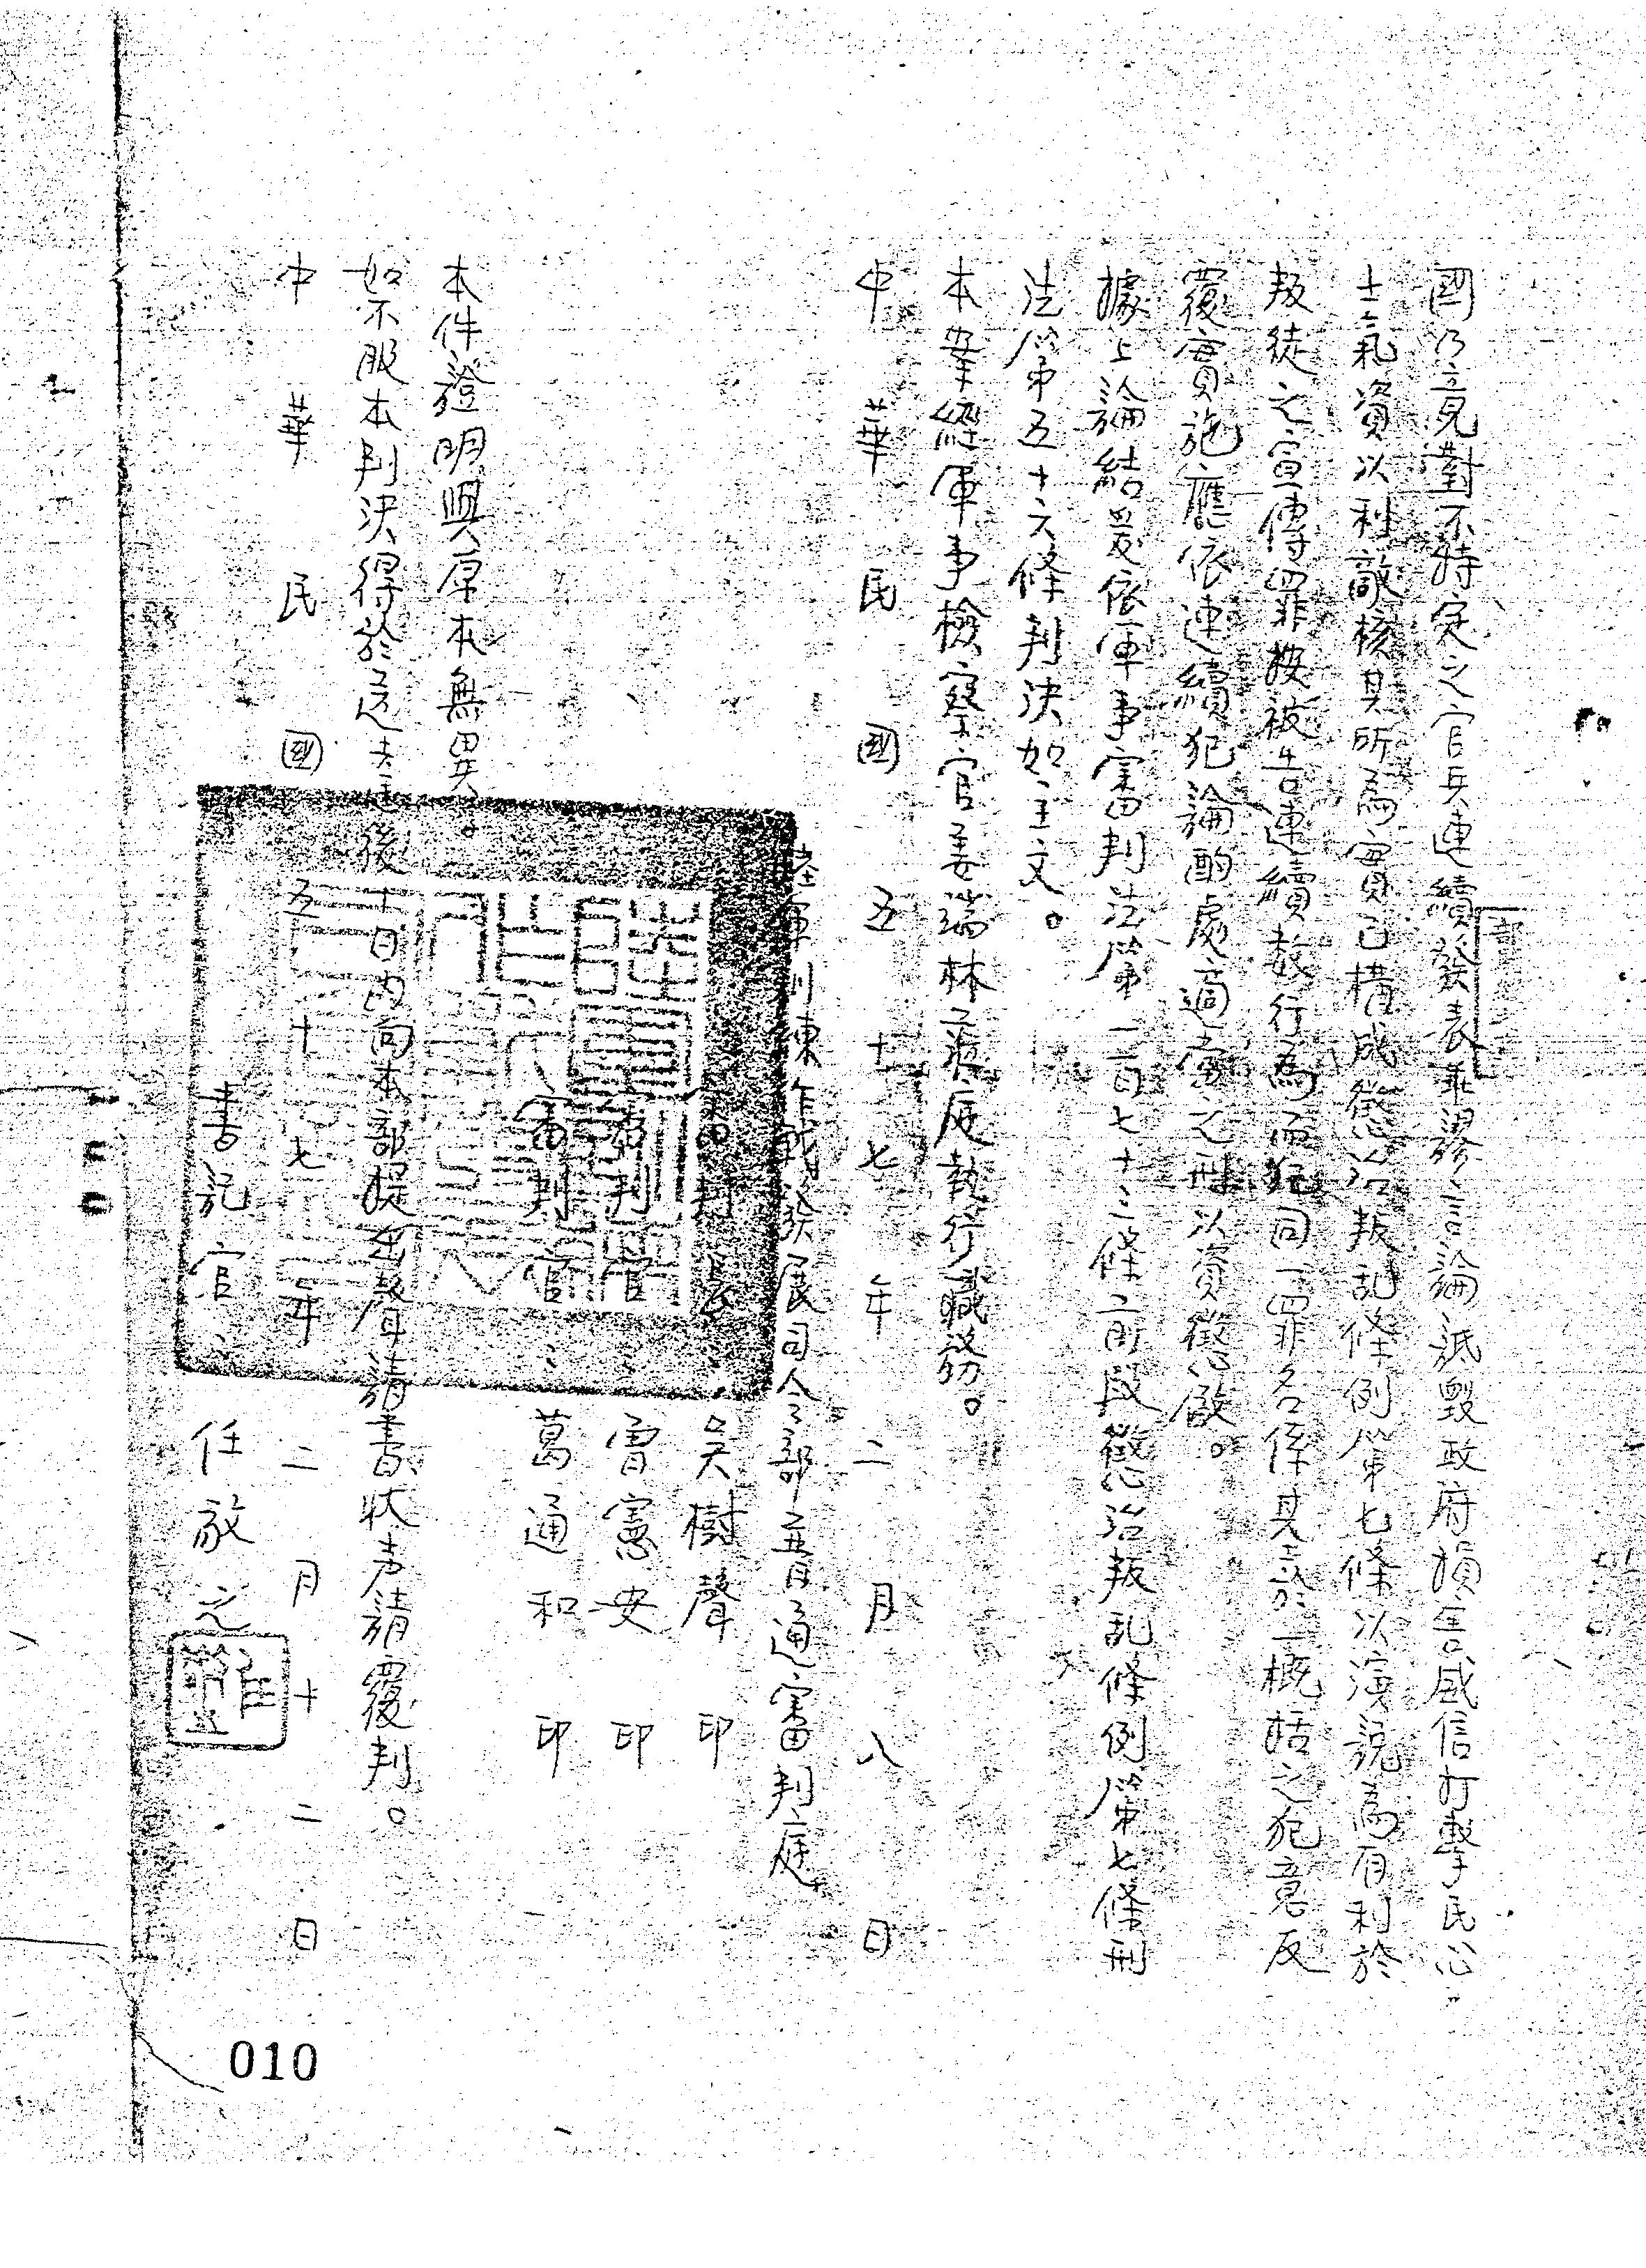 國乃竟對不特定之官兵連續發表乖謬言論詆毀政府損害威信打擊民心
士氣資以利敵核其所為實已構成懲治叛乱條例第七條以演說為有利於
叛徒之宣傳罪按被告連續數行為而犯同一罪名係基於一概括之犯意反
覆實施應依連續犯論酌處適當之刑以資懲儆。
據上論結爰依軍事審判法第一百七十三條前段懲治叛乱條例第七條刑
法第五十六條判決如主文。
本案經軍事檢察官姜瑞林蒞庭執行職務。
中華民國五十七年二月八日
陸軍訓練作戰發展司令部普通審判庭
審判長 吳樹聲 印
審判官 曹憲安 印
審判官 葛通和 印
本件證明與原本無異。
如不服本判決得於送達後十日內向本部提出聲請書狀声請覆判。
中華民國五十七年二月十二日
書記官 任敬之
010